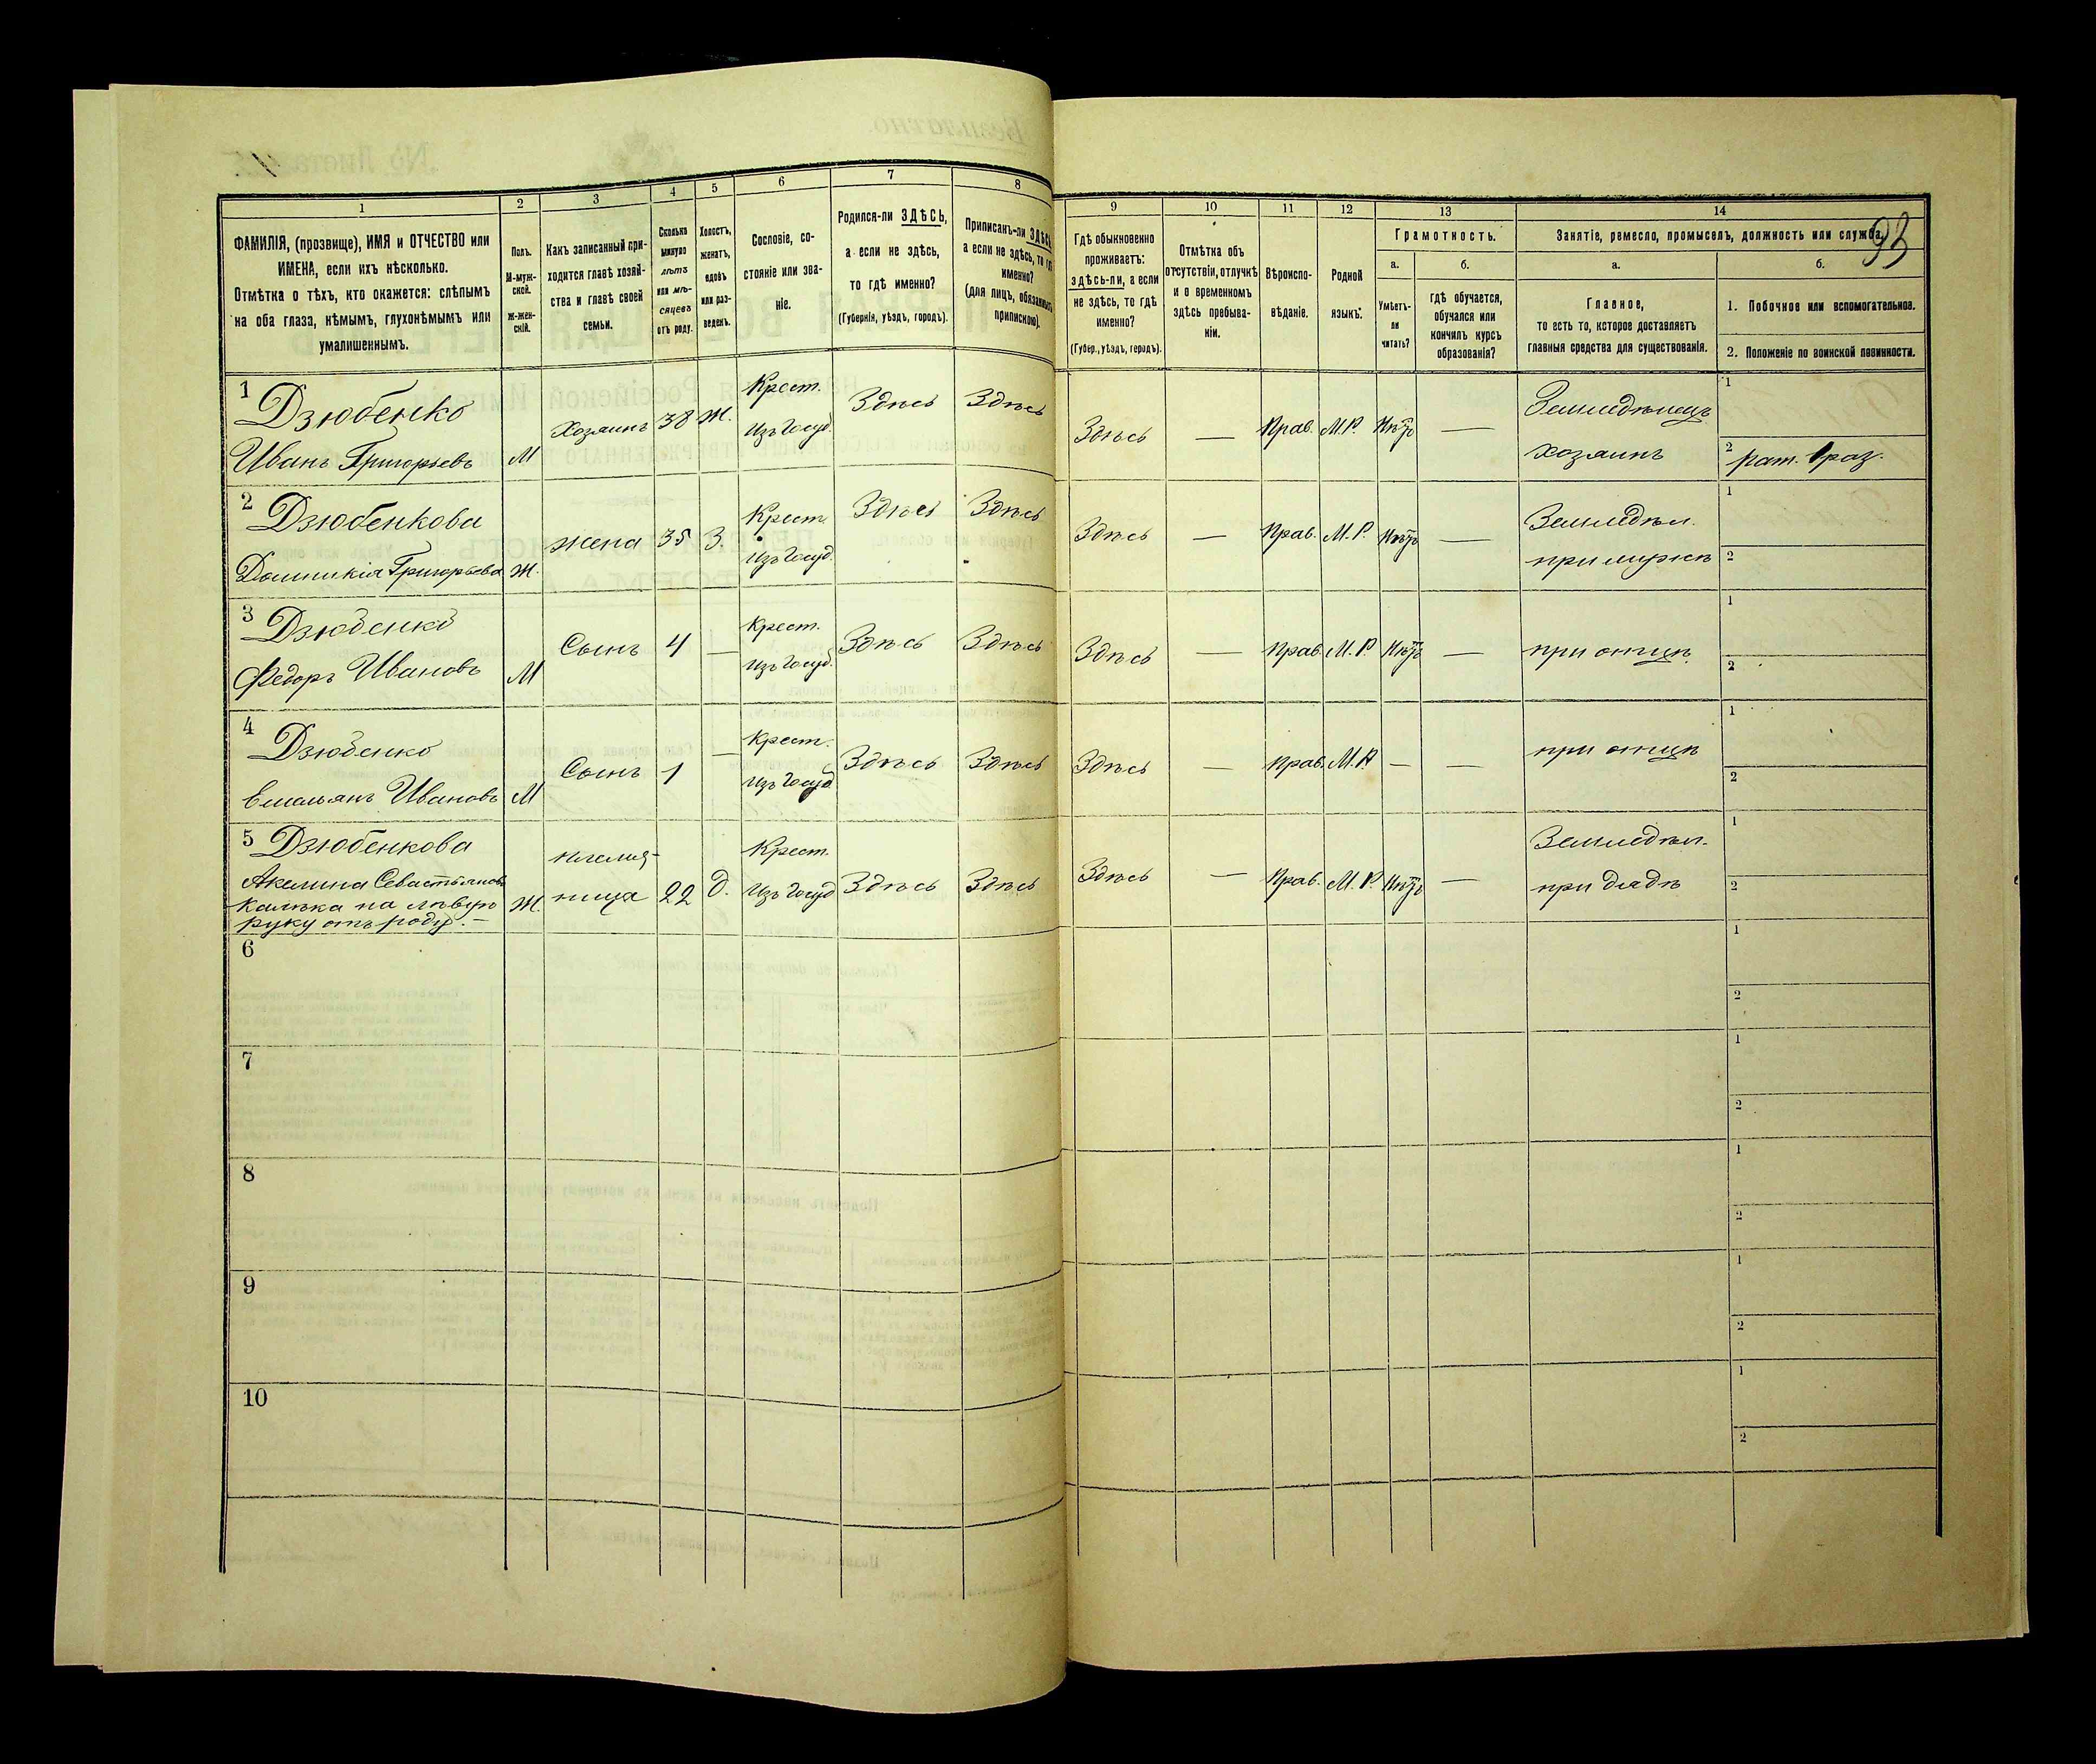 93
1 2 3 4 5 6 7 8 9 10 11 12 13 14
ФАМИЛІЯ, (прозвище), ИМЯ и ОТЧЕСТВО или
ИМЕНА, если ихъ нѣсколько.
Отмѣтка о тѣхъ, кто окажется: слѣпымъ
на оба глаза, нѣмымъ, глухонѣмымъ или
умалишеннымъ.
Полъ.
М-муж-
ской.
Ж-жен-
скій.
Какъ записанный при-
ходится главѣ хозяй-
ства и главѣ своей
семьи.
Сколько
минуло
лѣтъ
или мѣ-
сяцевъ
отъ роду.
Холостъ,
женатъ,
вдовъ
или раз-
веденъ.
Сословіе, со-
стояніе или зва-
ніе.
Родился-ли ЗДѢСЬ,
а если не здѣсь,
то гдѣ именно?
(Губернія, уѣздъ, городъ).
Приписанъ-ли ЗДѢСЬ,
а если не здѣсь, то гдѣ
именно?
(для лицъ, обязанныхъ
припискою).
Гдѣ обыкновенно
проживаетъ:
здѣсь-ли, а если
не здѣсь, то гдѣ
именно?
(Губер., уѣздъ, городъ).
Отмѣтка объ
отсутствіи, отлучкѣ
и о временномъ
здѣсь пребыва-
ніи.
Вѣроиспо-
вѣданіе.
Родной
языкъ.
Грамотность.
а.
Умѣетъ-
ли
читать?
б.
гдѣ обучается,
обучался или
кончилъ курсъ
образованія?
Занятіе, ремесло, промыселъ, должность или служба.
а.
Главное,
то есть то, которое доставляетъ
главныя средства для существованія.
б.
1. Побочное или вспомогательное.
2. Положеніе по воинской повинности.
1 Дзюбенко Крест. Здѣсь Здѣсь Земледѣлецъ 1
Хозяинъ 38 Ж. изъ Госуд. Здѣсь — Прав. М.Р. Нѣтъ —
Иванъ Григорьевъ М хозяинъ 2 рат. 1 раз.
2 Дзюбенкова Крест. Здѣсь Здѣсь Земледѣл. 1
жена 35 З. изъ Госуд. Здѣсь — Прав. М.Р. Нѣтъ —
Домникія Григорьева Ж. при мужѣ 2
3 Дзюбенко Крест. 1
Сынъ 4 — изъ Госуд. Здѣсь Здѣсь Здѣсь — Прав. М.Р. Нѣтъ — при отцѣ
Федоръ Ивановъ М 2
4 Дзюбенко Крест. 1
Сынъ 1 — изъ Госуд. Здѣсь Здѣсь Здѣсь — Прав. М.Р. — — при отцѣ
Емельянъ Ивановъ М 2
5 Дзюбенкова племя- Крест. Земледѣл. 1
Акелина Севастьянова
ница 22 д. изъ Госуд. Здѣсь Здѣсь Здѣсь — Прав. М.Р. Нѣтъ — при дядѣ 2
Калѣка на лѣвую Ж.
руку отъ роду.—
6 1
2
7 1
2
8 1
2
9 1
2
10 1
2